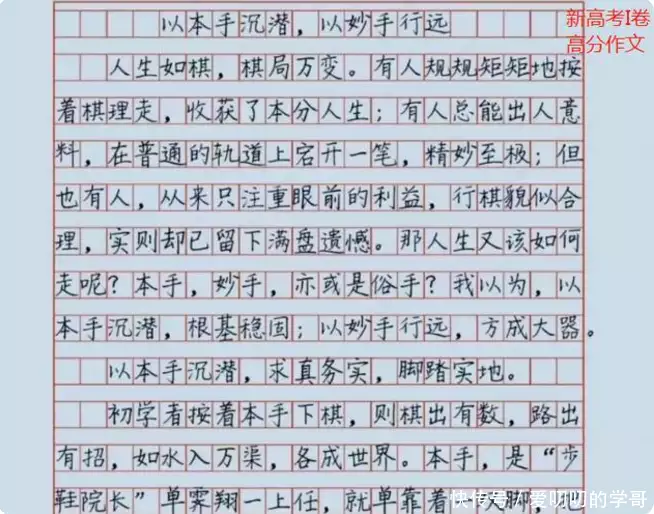 新高考I卷
高分作文
以本手沉潜，以妙手行远
人生如棋，棋局万变。有人规规矩矩地按
着棋理走，收获了本分人生；有人总能出人意
料，在普通的轨道上宕开一笔，精妙至极；但
也有人，从来只注重眼前的利益，行棋貌似合
理，实则却已留下满盘遗憾。那人生又该如何
走呢？本手，妙手，亦或是俗手？我以为，以
本手沉潜，根基稳固；以妙手行远，方成大器。
以本手沉潜，求真务实，脚踏实地。
初学者按着本手下棋，则棋出有数，路出
有招，如水入万渠，各成世界。本手，是“步
鞋院长”单霁翔一上任，就单靠着
快传号/爱叨叨的学哥